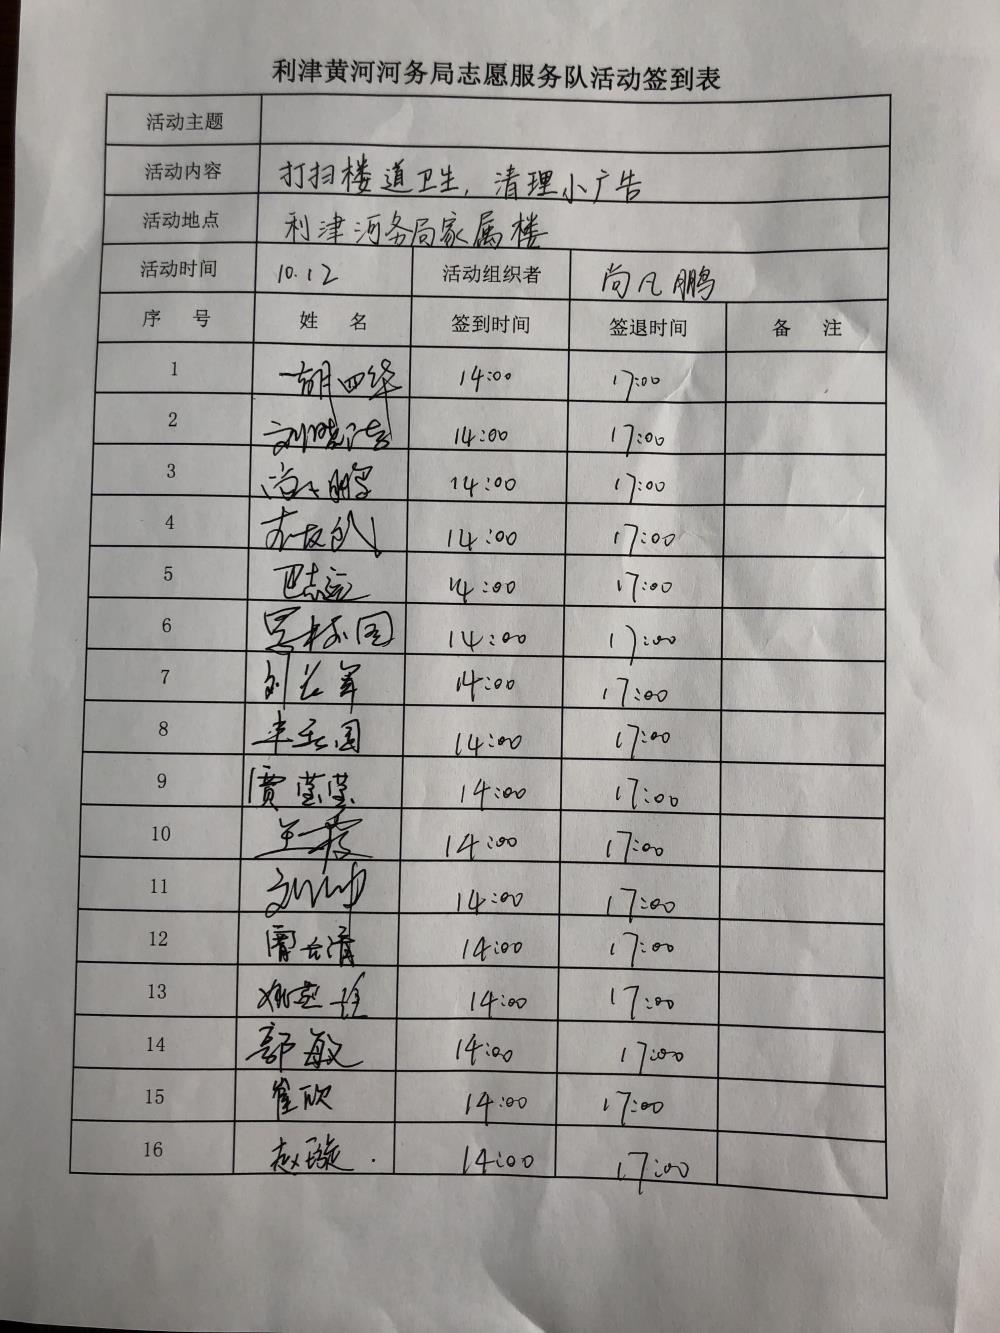 利津黄河河务局志愿服务队活动签到表
活动主题
活动内容 打扫楼道卫生，清理小广告
活动地点 利津河务局家属楼
活动时间 10.12 活动组织者 尚凡鹏
序 号 姓 名 签到时间 签退时间 备 注
1 胡四华 14:00 17:00
2 刘晓洁 14:00 17:00
3 14:00 17:00
4 14:00 17:00
5 巴志远 14:00 17:00
6 14:00 17:00
7 14:00 17:00
8 14:00 17:00
9 贾莹莹 14:00 17:00
10 王霞 14:00 17:00
11 刘帅 14:00 17:00
12 14:00 17:00
13 14:00 17:00
14 郭敏 14:00 17:00
15 崔欣 14:00 17:00
16 赵璇. 14:00 17:00